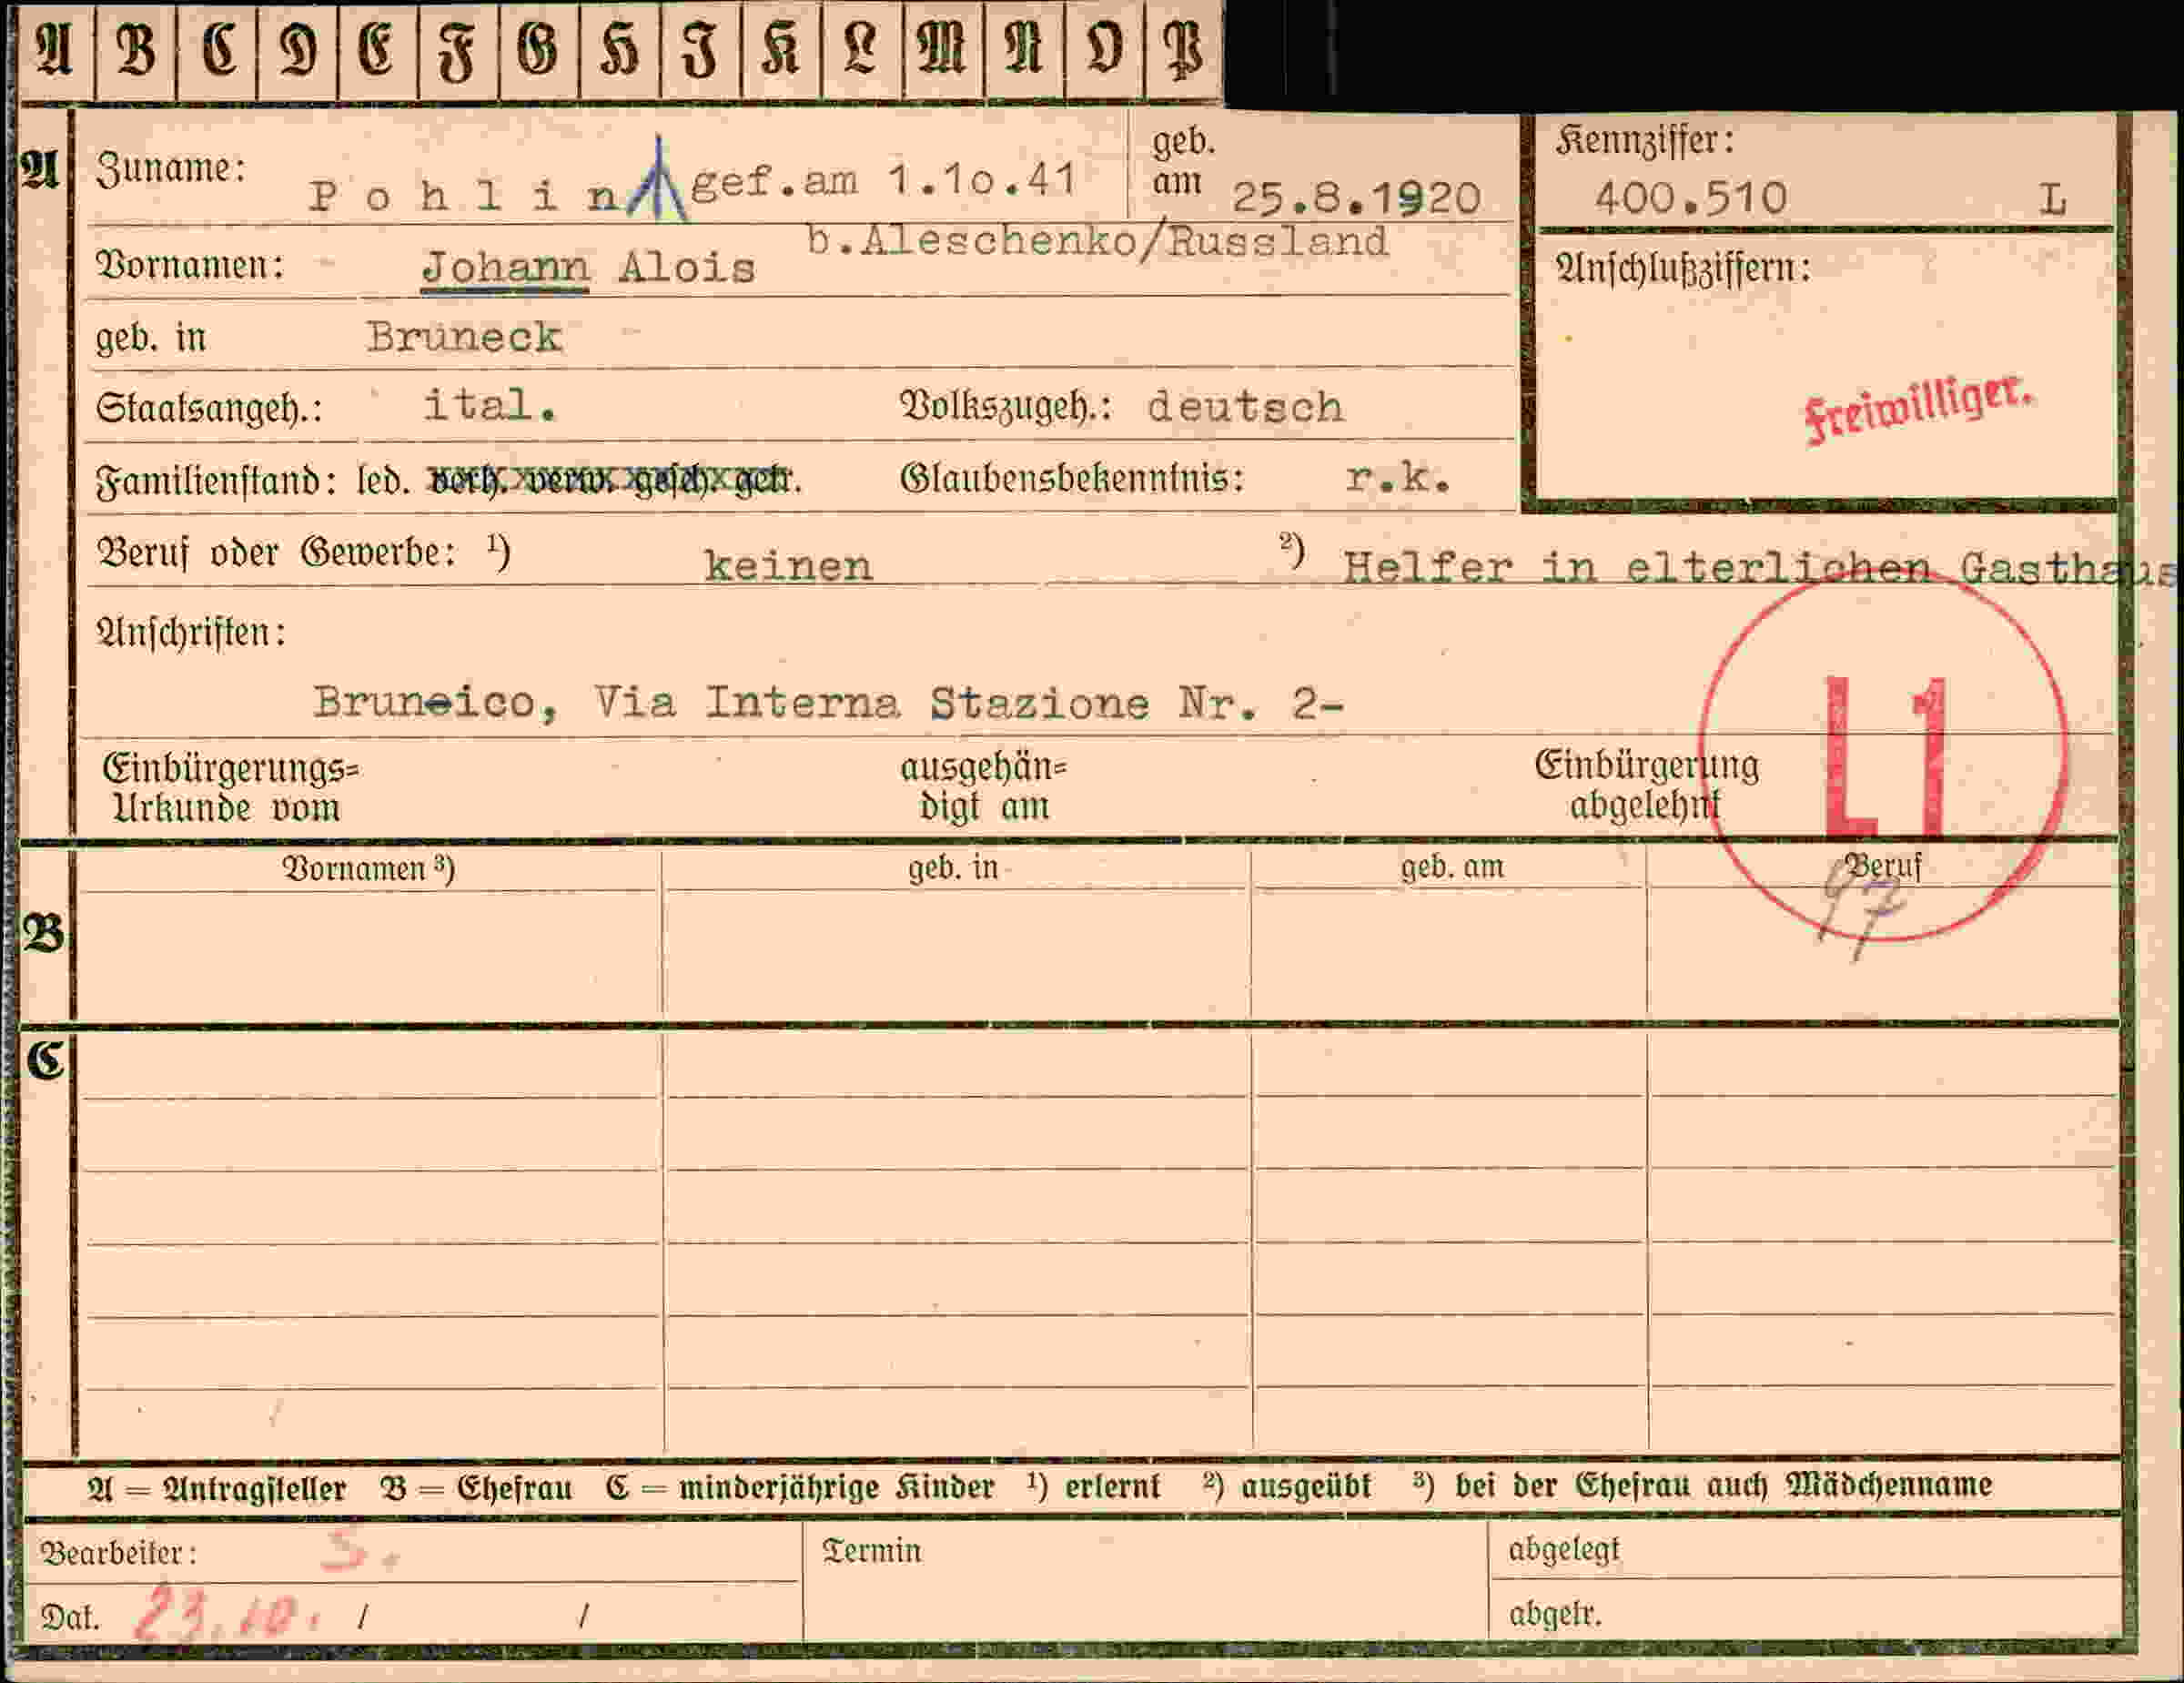 A B C D E F G H I K L M N O P
A Zuname: Pohlin gef.am 1.10.41 geb. am 25.8.1920
b.Aleschenko/Russland
Kennziffer: 400.510 L
Vornamen: Johann Alois
Anschlußziffern:
geb. in Bruneck
Freiwilliger.
Staatsangeh.: ital. Volkszugeh.: deutsch
Familienstand: led. verh. verw. gesch. getr. Glaubensbekenntnis: r.k.
Beruf oder Gewerbe: ¹) keinen ²) Helfer in elterlichen Gasthaus
Anschriften:
Bruneico, Via Interna Stazione Nr. 2-
L1
Einbürgerungs= ausgehän= Einbürgerung
Urkunde vom digt am abgelehnt
Vornamen ³) geb. in geb. am Beruf
97
B
C
A = Antragsteller B = Ehefrau C = minderjährige Kinder ¹) erlernt ²) ausgeübt ³) bei der Ehefrau auch Mädchenname
Bearbeiter: S. Termin abgelegt
Dat. 23.10. / / abgetr.